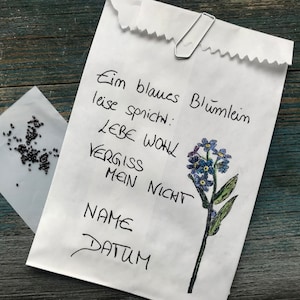 Ein blaues Blümlein
leise spricht:
LEBE WOHL
VERGISS
MEIN NICHT
NAME
DATUM